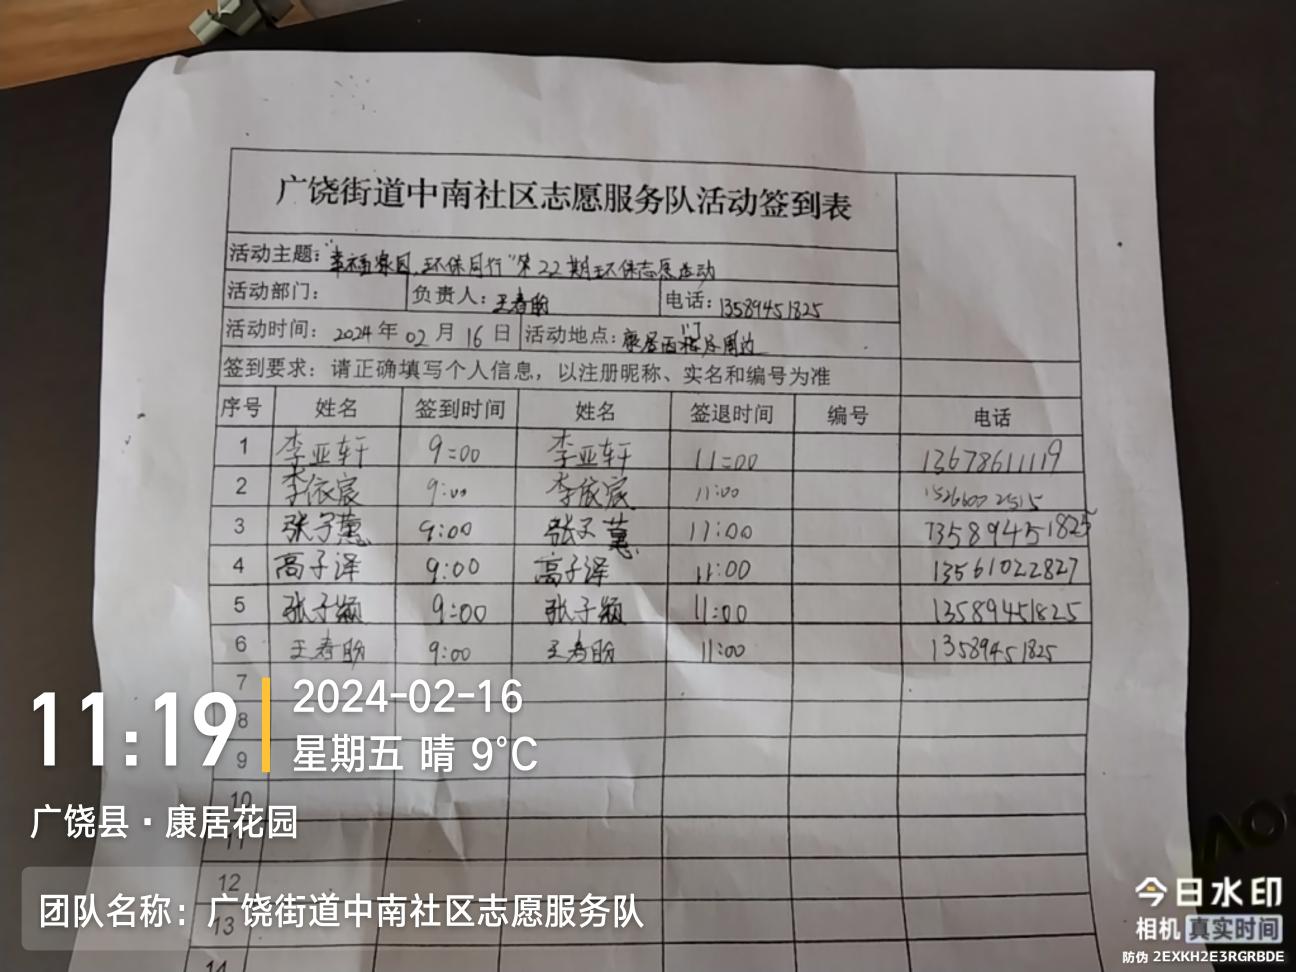 广饶街道中南社区志愿服务队活动签到表
活动主题："幸福家园，环保同行"第22期环保志愿活动
活动部门： 负责人：王春盼 电话：13589451825
活动时间：2024年02月16日 活动地点：康居西门及周边
签到要求：请正确填写个人信息，以注册昵称、实名和编号为准
序号 姓名 签到时间 姓名 签退时间 编号 电话
1 李亚轩 9:00 李亚轩 11:00 13678611119
2 李依宸 9:00 李依宸 11:00 15266002515
3 张子蕙 9:00 张子蕙 11:00 13589451825
4 高子泽 9:00 高子泽 11:00 13561022827
5 张子颍 9:00 张子颍 11:00 13589451825
6 王春盼 9:00 王春盼 11:00 13589451825
7
8
9
10
11
12
13
14
11:19
2024-02-16
星期五 晴 9°C
广饶县·康居花园
团队名称：广饶街道中南社区志愿服务队
今日水印
相机 真实时间
防伪 2EXKH2E3RGRBDE